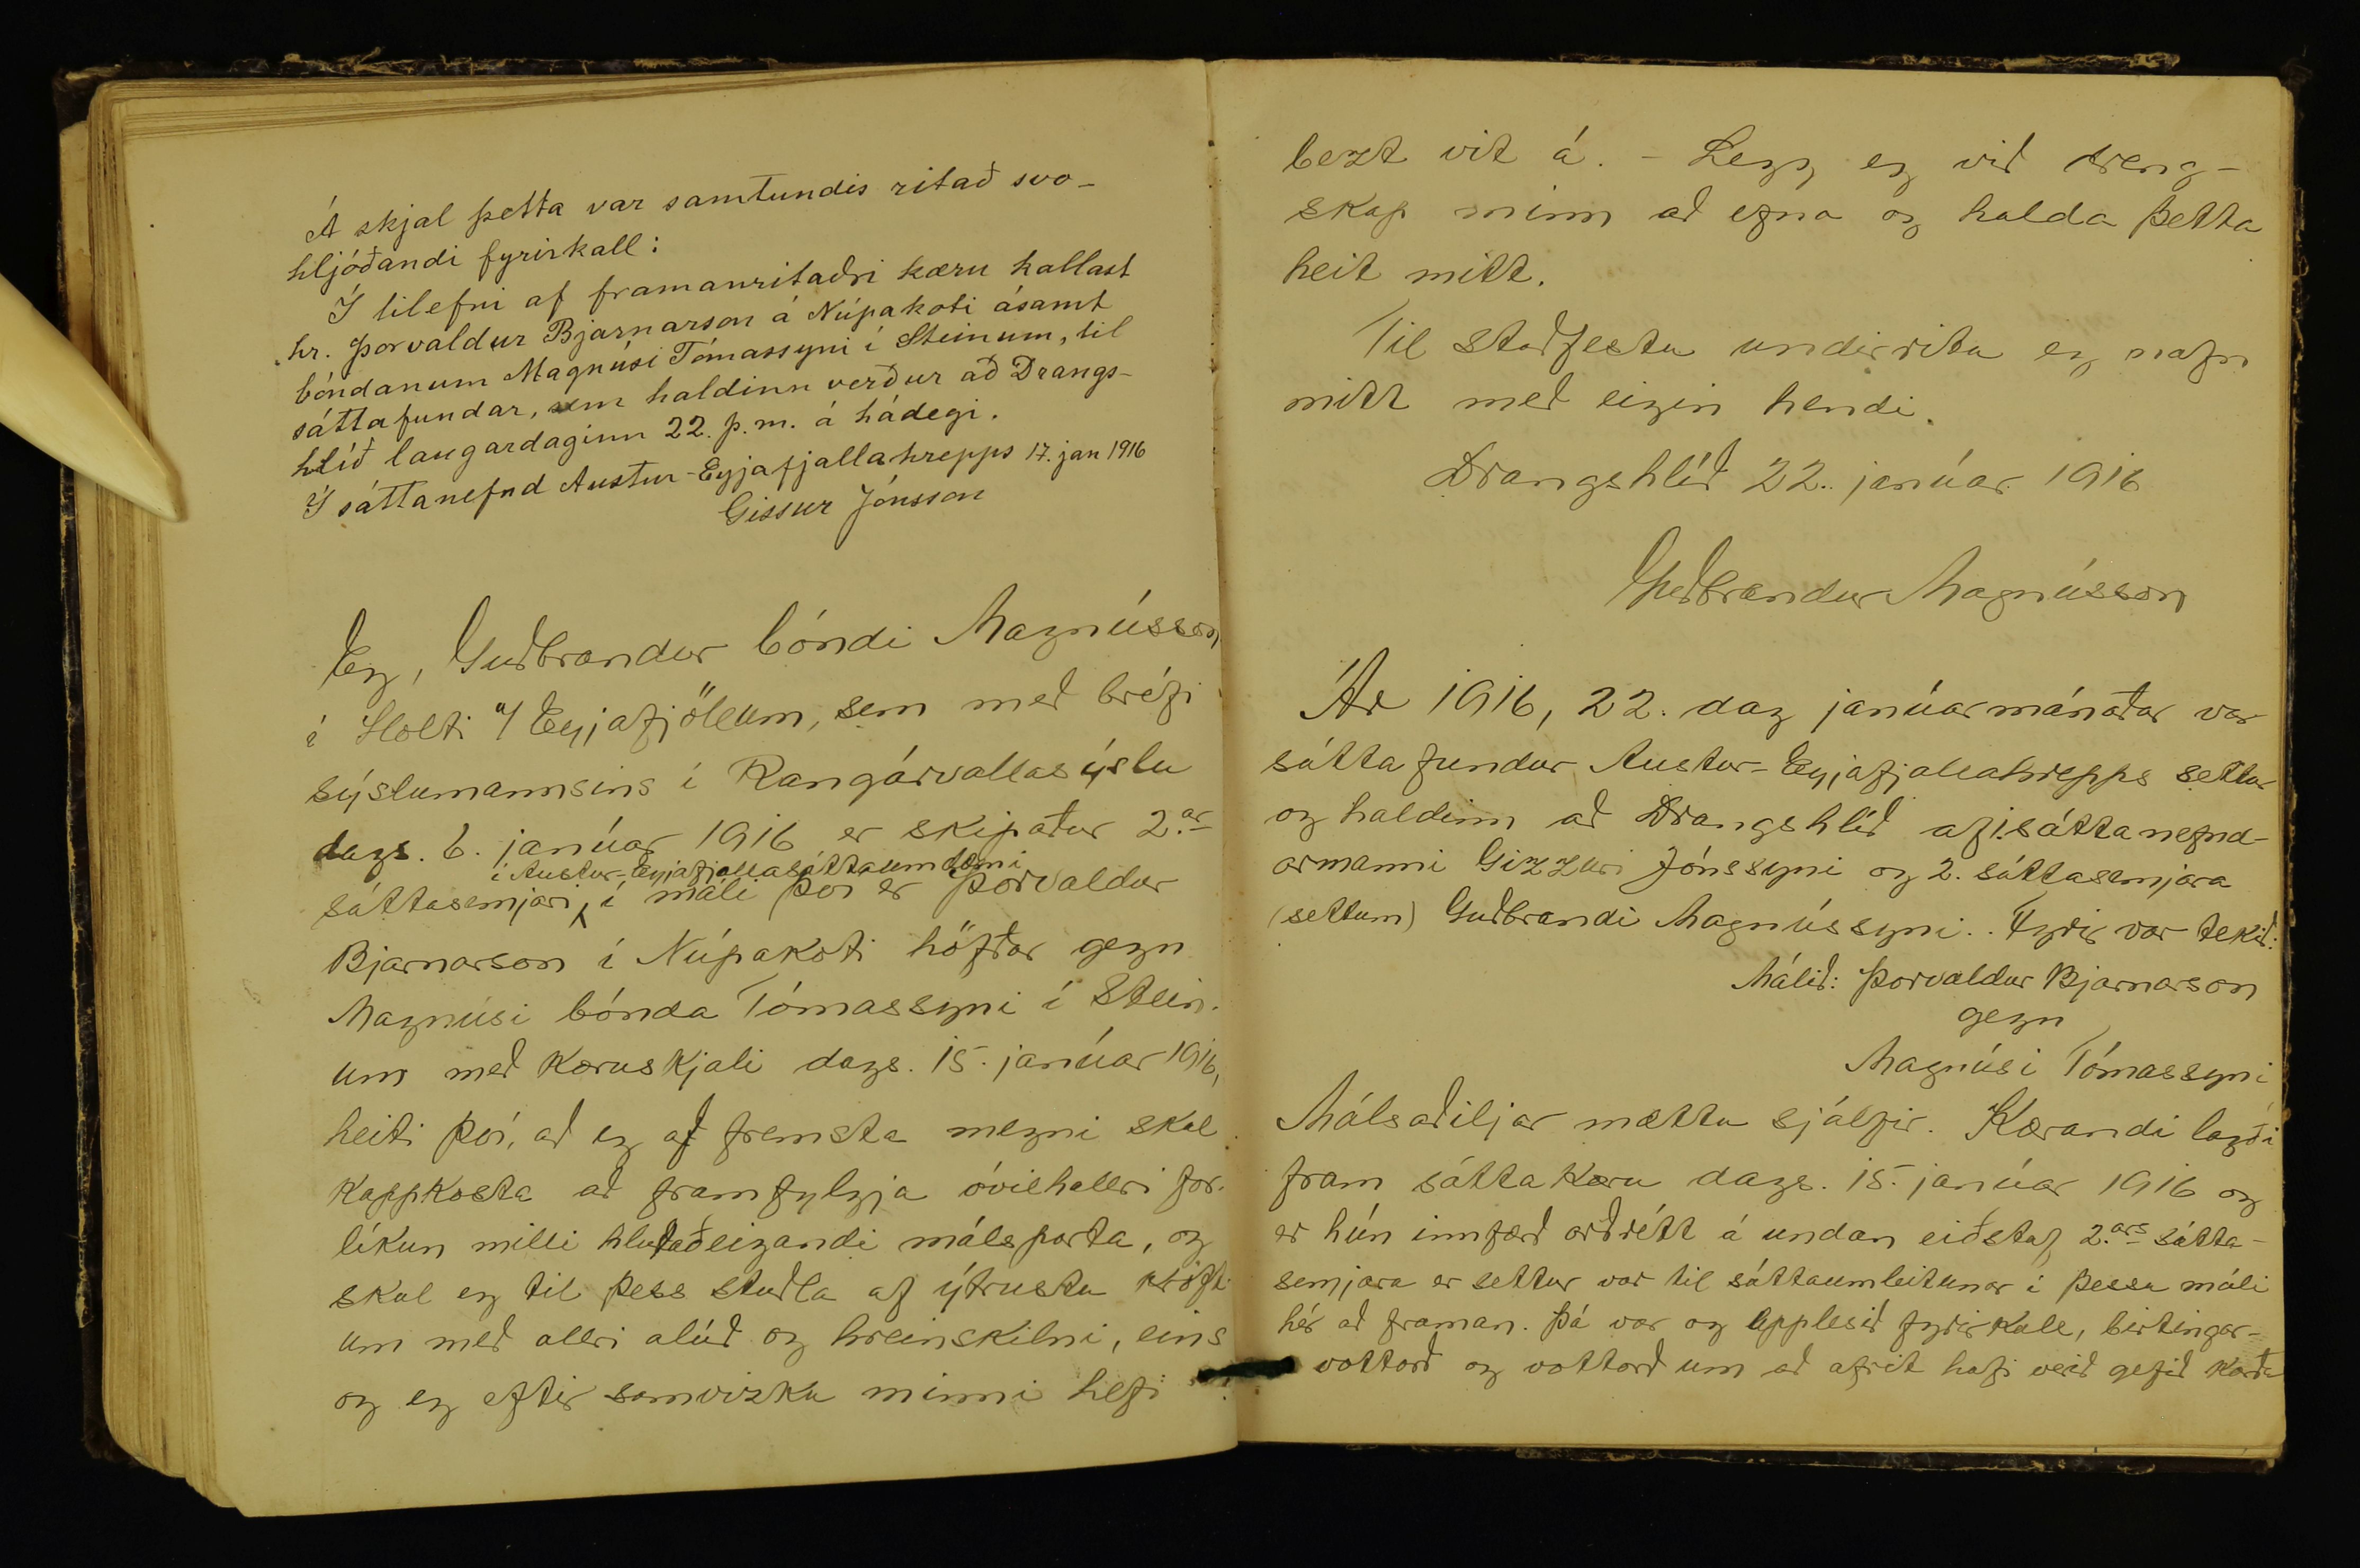 Á skjal þetta var samstundis ritað svo-
hljóðandi fyrirkall:
Í tilefni af framanritaðri kæru kallast
hr. Þorvaldur Bjarnarson á Núpakoti ásamt
bóndanum Magnúsi Tómassyni í Steinum, til
sáttafundar, sem haldinn verður að Drangs-
hlíð laugardaginn 22. þ.m. á hádegi.
Í sáttanefnd Austur-Eyjafjallahrepps 17. jan 1916
Gissur Jónsson
Eg, Guðbrandur bóndi Magnússon
í Holti u/ Eyjafjöllum, sem með bréfi
sýslumannsins í Rangárvallasýslu
dags. 6. janúar 1916 er skipaður 2.ar
í Austur-Eyjafjallasáttaumdæmi
sáttasemjari, í máli því er Þorvaldur
Bjarnarson í Núpakoti höfðar gegn
Magnúsi bónda Tómassyni í Stein-
um með kæruskjali dags. 15. janúar 1916,
heiti því, að eg af fremsta megni skal
kappkosta að framfylgja óvilhallri for-
líkun milli hlutaðeigandi málsparta, og
skal eg til þess stuðla af ýtrustu kröft-
um með allri alúð og hreinskilni, eins
og eg eftir samvizku minni hefi
bezt vit á. - Legg eg við dreng-
skap minn að efna og halda þetta
heit mitt.
Til staðfestu undirrita eg nafn
mitt með eigin hendi.
Drangshlíð 22. janúar 1916
Guðbrandur Magnússon
Ár 1916, 22. dag janúarmánaðar var
sáttafundur Austur-Eyjafjallahrepps settur
og haldinn að Drangshlíð af 1. sáttanefnd-
armanni Gizzuri Jónssyni og 2. sáttasemjara
(settum) Guðbrandi Magnússyni. Fyrir var tekið:
Málið: Þorvaldur Bjarnarson
gegn
Magnúsi Tómassyni
Málsaðiljar mættu sjálfir. Kærandi lagði
fram sáttakæru dags. 15. janúar 1916 og
er hún innfærð orðrétt á undan eiðstaf 2.ars sátta-
semjara er settur var til sáttaumleitunar í þessu máli
hér að framan. Þá var og upplesið fyrirkall, birtingar-
vottorð og vottorð um að afrit hafi verið gefið kærða